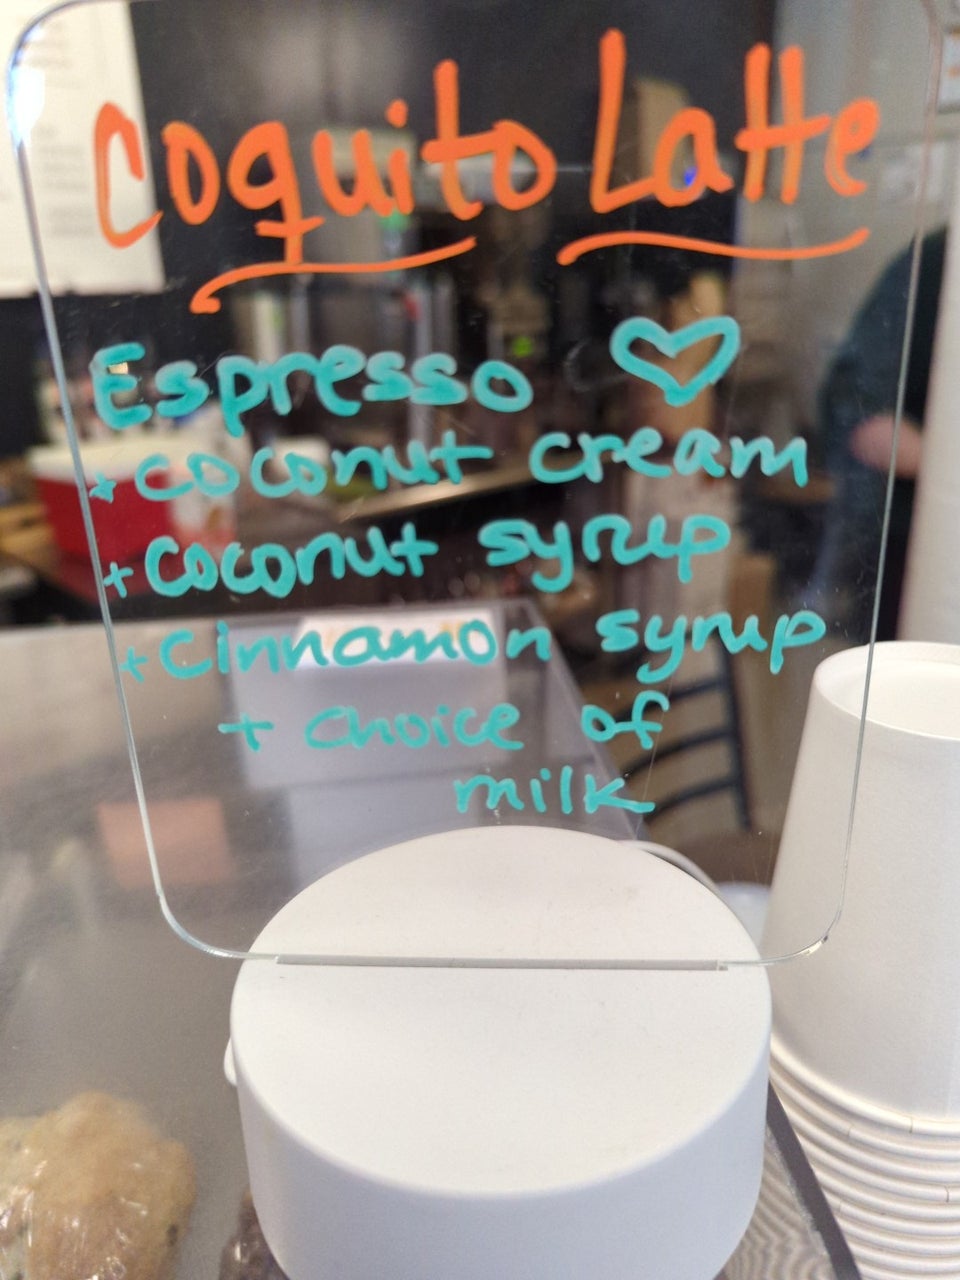 Coquito Latte
Espresso
+ coconut cream
+ coconut syrup
+ cinnamon syrup
+ choice of
milk